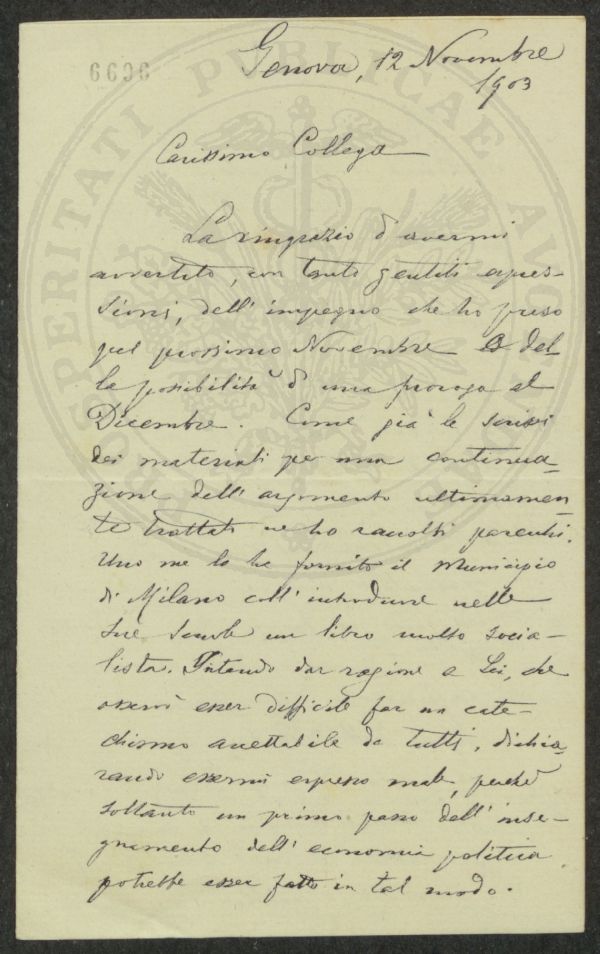 6606
PROSPERITATI PUBLICAE AVO
Genova, 12 Novembre
1903
Carissimo Collega
La ringrazio d'avermi
avvertito, con tanto gentili espres-
sioni, dell'impegno che ho preso
pel prossimo Novembre e del
la possibilità d'una proroga al
Dicembre. Come già le scrissi
dei materiali per una continua-
zione dell'argomento ultimamen-
te trattato ne ho raccolti parecchi.
Uno me lo ha fornito il Municipio
di Milano coll'introdurre nelle
sue Scuole un libro molto socia-
lista. Intendo dar ragione a Lei, che
osservò esser difficile far un cate-
chismo accettabile da tutti, dichia-
rando essermi espresso male, perchè
soltanto un primo passo dell'inse-
gnamento dell'economia politica
potrebbe esser fatto in tal modo.